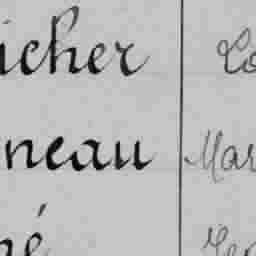 icher Lo
neau Mar
né